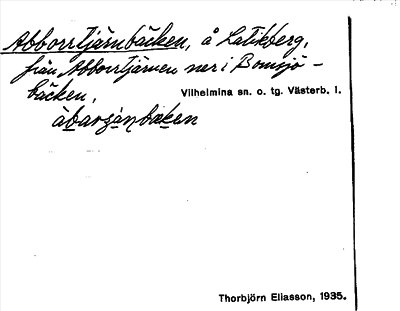 Abborrtjärnbäcken, å Latikberg,
från Abborrtjärnen ner i Bomsjö-
bäcken,
Vilhelmina sn. o. tg. Västerb. l.
àbarʂánbäken
Thorbjörn Eliasson, 1935.